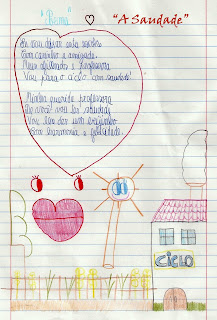 "Poema"
"A Saudade"
Eu vou deixar esta escola
Com carinho e amizade.
Meus alunos e professora
Vou para o ciclo com saudade!
Minha querida professora
De você vou ter saudade
Vou lhe dar um beijinho
Com harmonia e felicidade.
CICLO